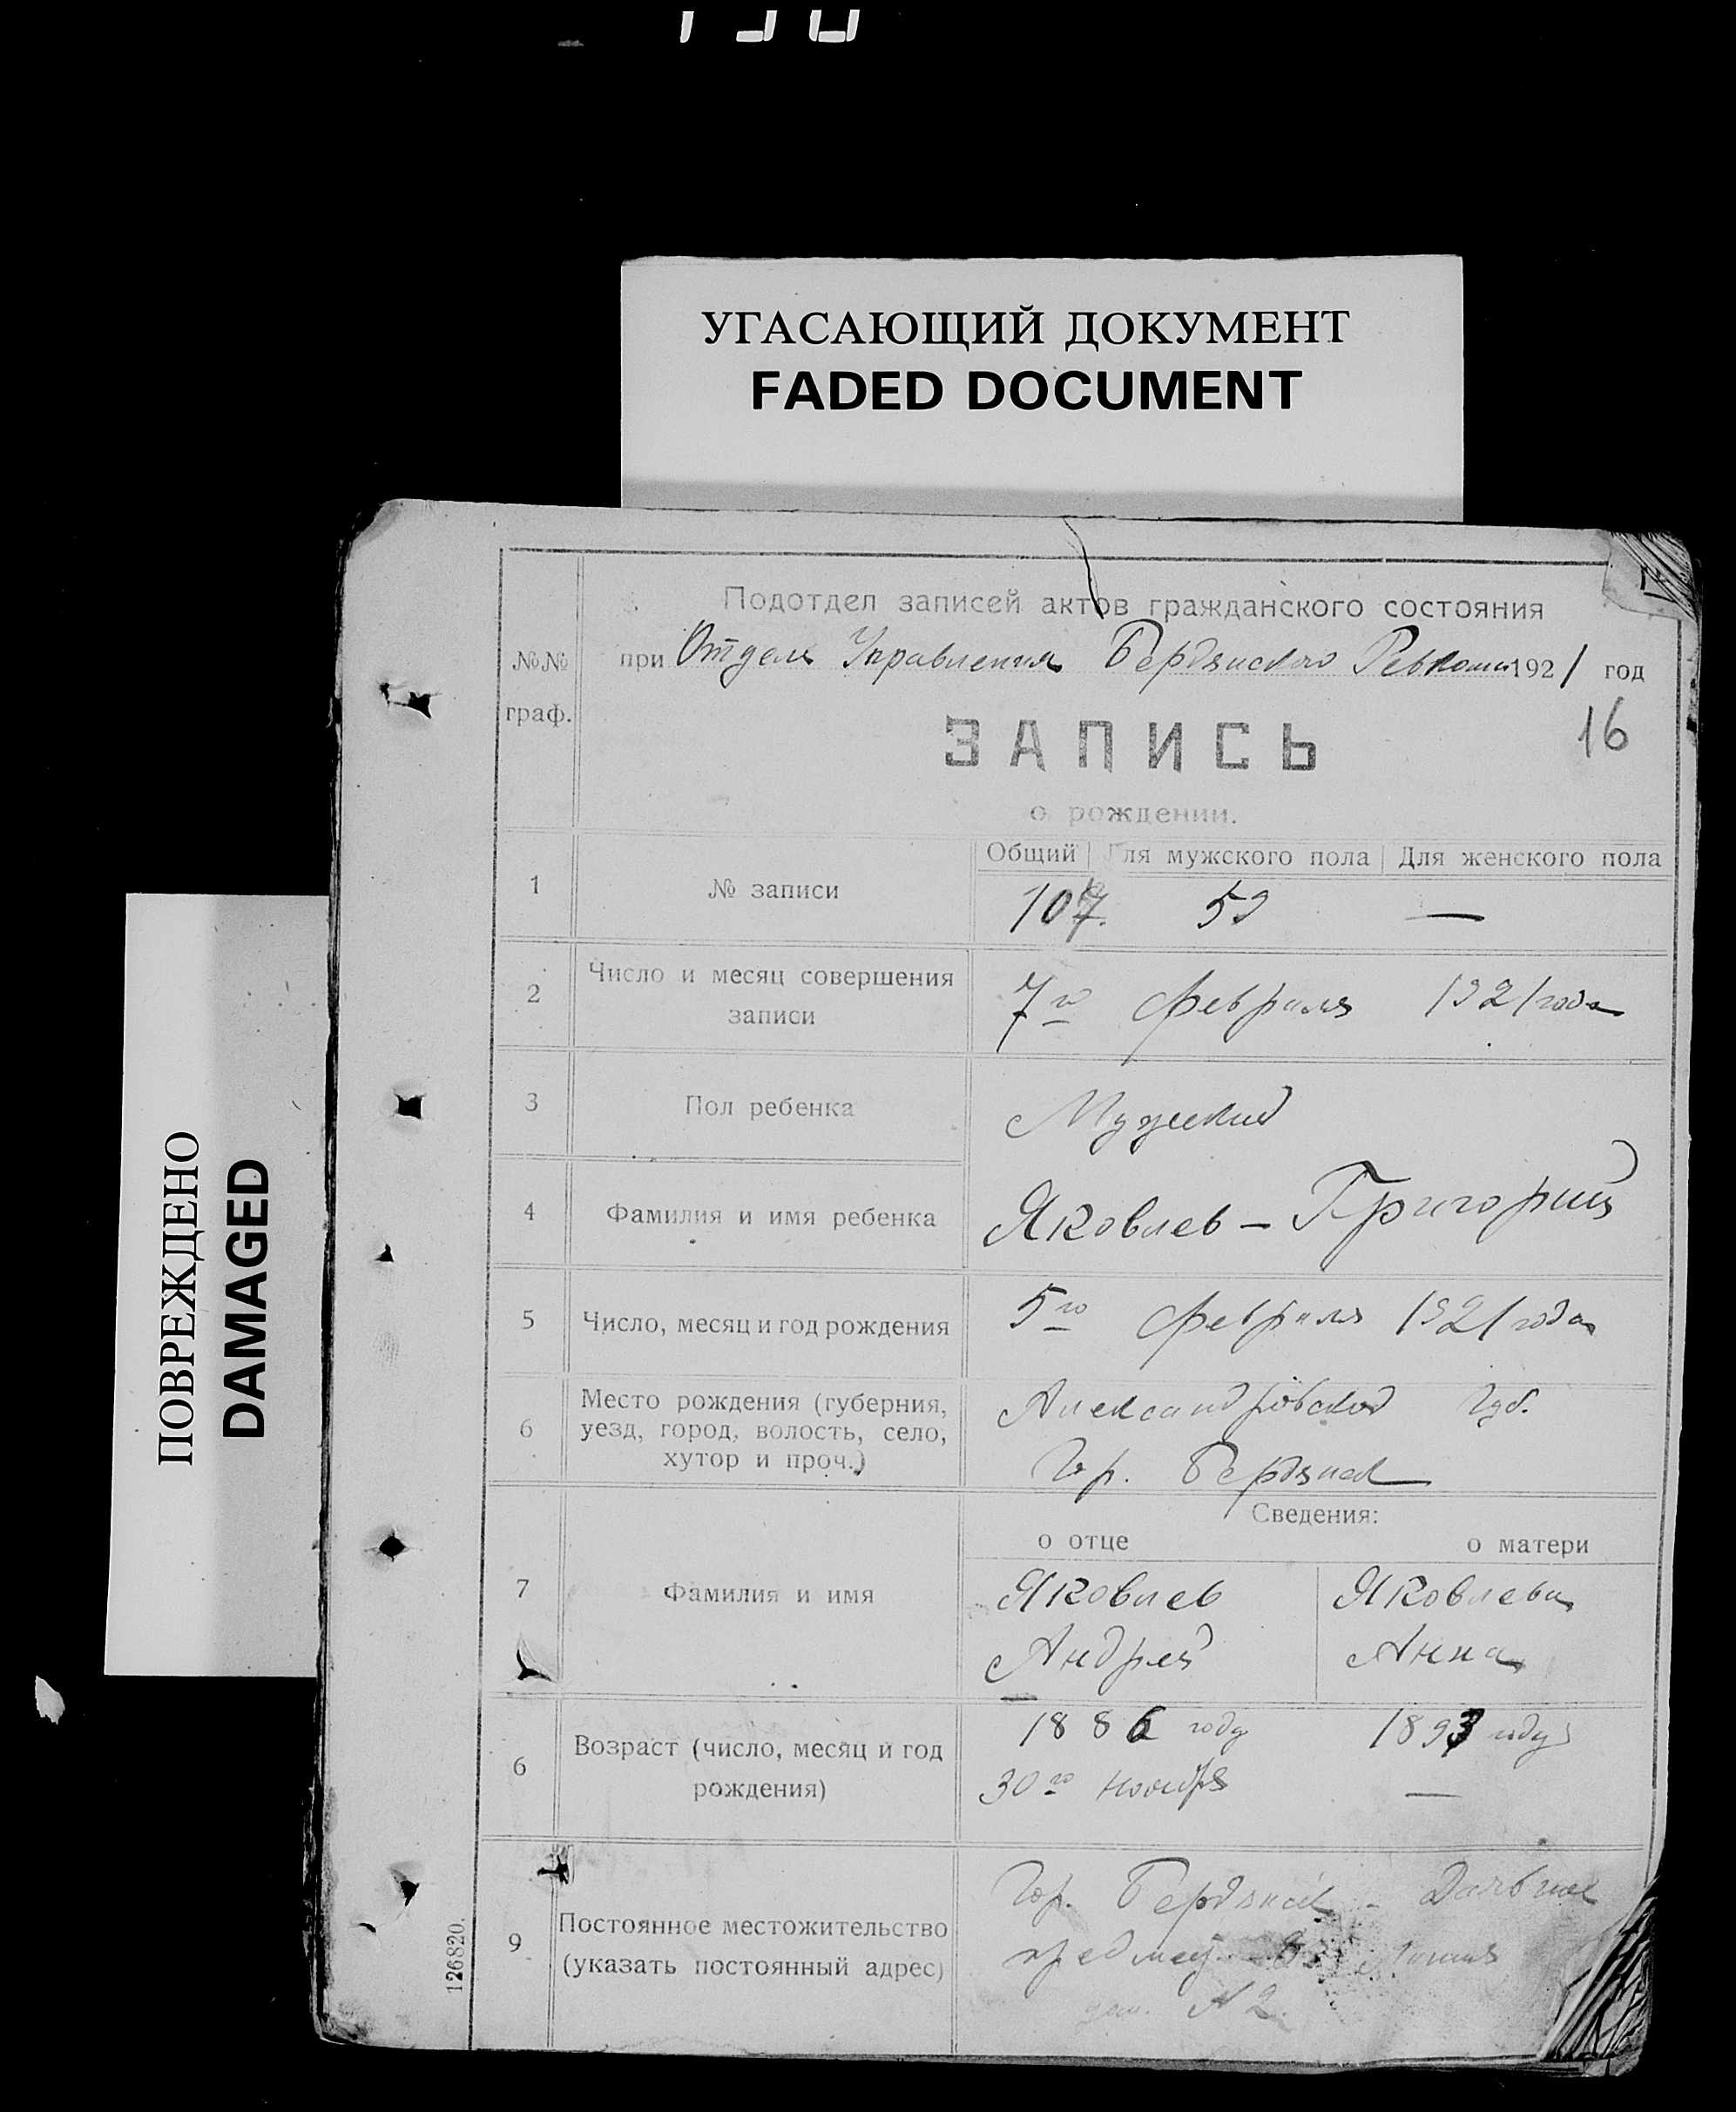 УГАСАЮЩИЙ ДОКУМЕНТ
FADED DOCUMENT
ПОВРЕЖДЕНО
DAMAGED
Подотдел записей актов гражданского состояния
№№ граф.
при Отделе Управления Бердянского Ревкома 1921 год
16
ЗАПИСЬ
о рождении.
Общий Для мужского пола Для женского пола
1 № записи 107. 59 —
2 Число и месяц совершения записи 7го февраля 1921 года
3 Пол ребенка Мужской
4 Фамилия и имя ребенка Яковлев – Григорий
5 Число, месяц и год рождения 5го февраля 1921 года
6 Место рождения (губерния, уезд, город, волость, село, хутор и проч.) Александровской Губ.
Гор. Бердянск
Сведения:
о отце о матери
7 Фамилия и имя Яковлев Яковлева
Андрей Анна
6 Возраст (число, месяц и год рождения) 1886 году 1893 году
30го ноября —
9 Постоянное местожительство (указать постоянный адрес) Гор. Бердянск –
№ 2.
126820.